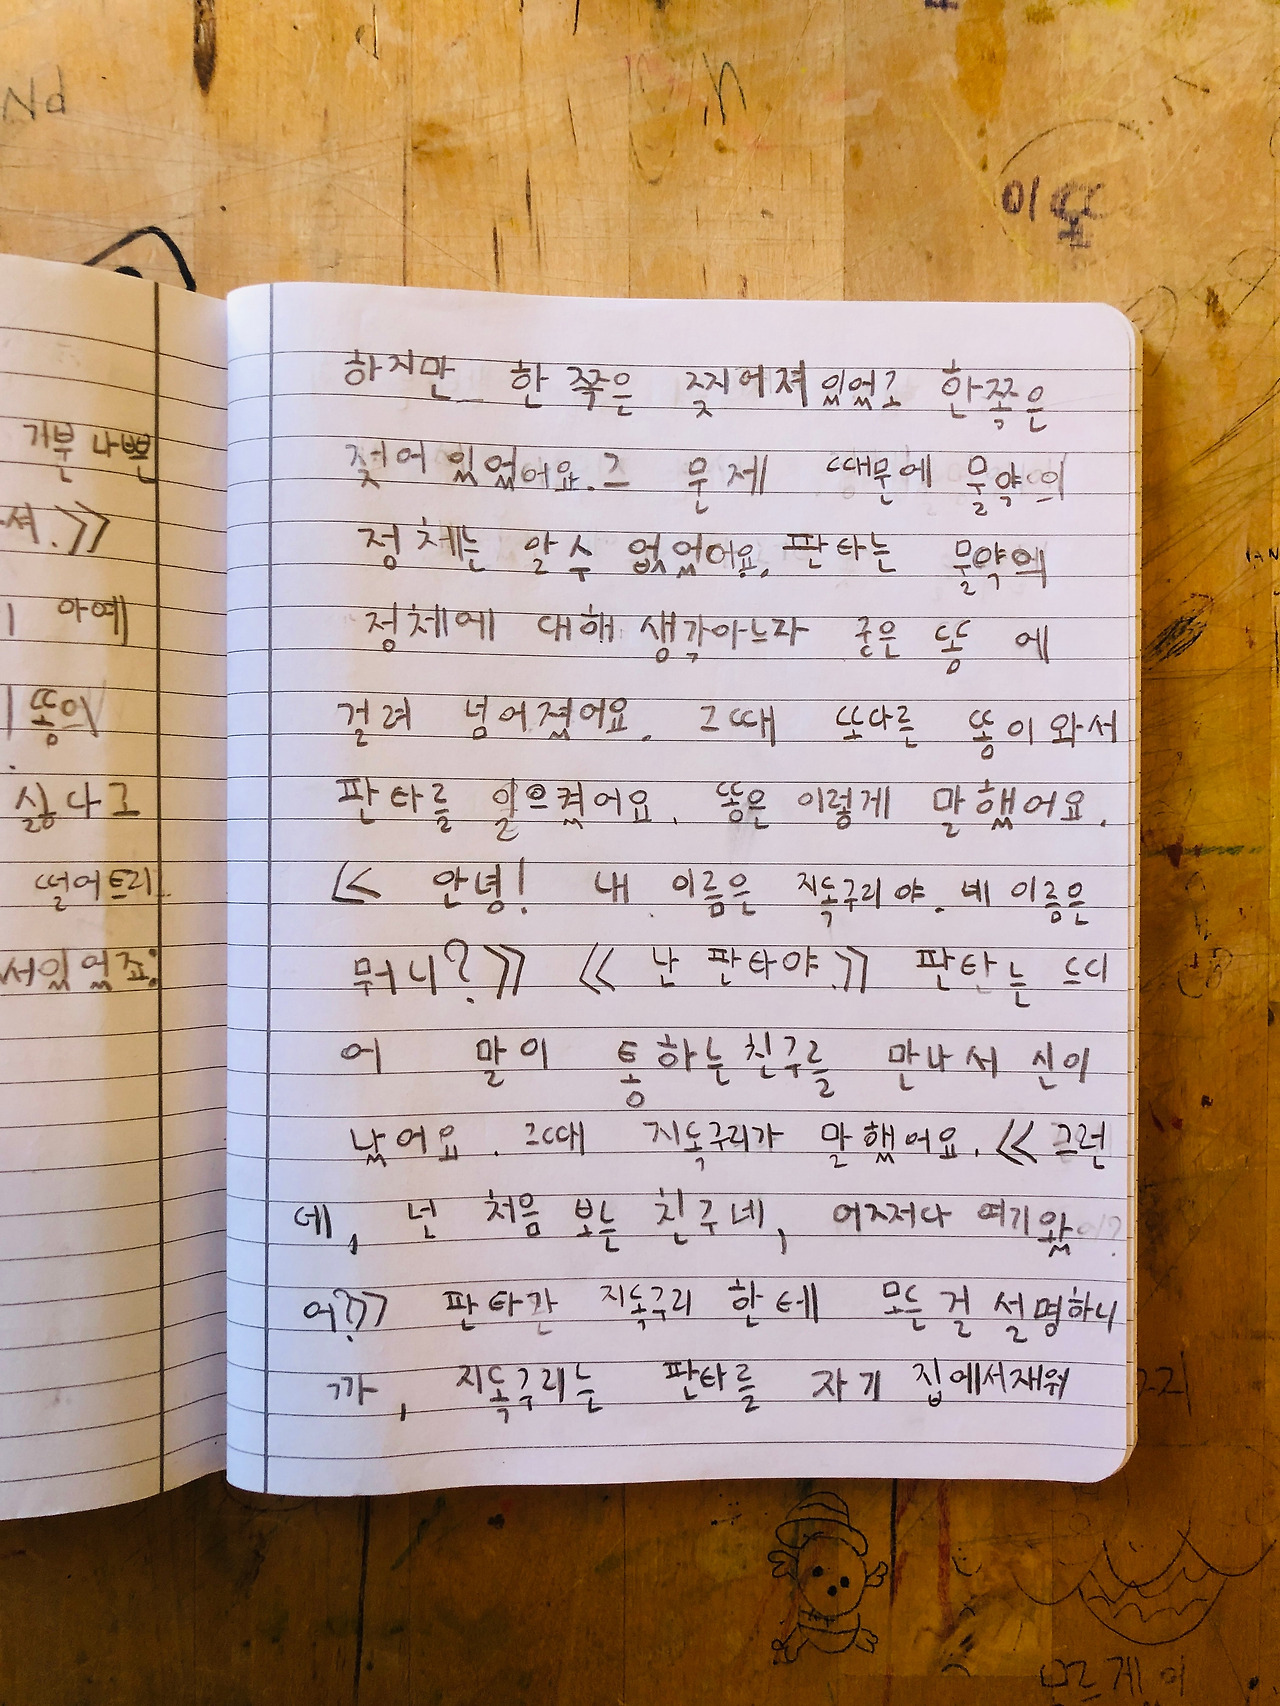 Nd
이또
거분 나쁜
셔.》
아예
똥이
싫다고
떨어트리
서있었죠.
하지만 한 쪽은 찢어져 있었고 한쪽은
젖어 있었어요. 그 문제 때문에 물약의
정체는 알 수 없었어요. 판타는 물약의
정체에 대해 생각아느라 굳은 똥 에
걸려 넘어졌어요. 그때 또다른 똥이 와서
판타를 일으켰어요. 똥은 이렇게 말했어요.
《 안녕! 내 이름은 지독구리야. 네 이름은
뭐니?》 《 난 판타야.》 판타는 드디
어 말이 통하는 친구를 만나서 신이
났어요. 그때 지독구리가 말했어요. 《 그런
데, 넌 처음 보는 친구네, 어쩌다 여기왔
어?》 판타가 지독구리 한테 모든걸 설명하니
까, 지독구리는 판타를 자기 집에서재워
모르게 이